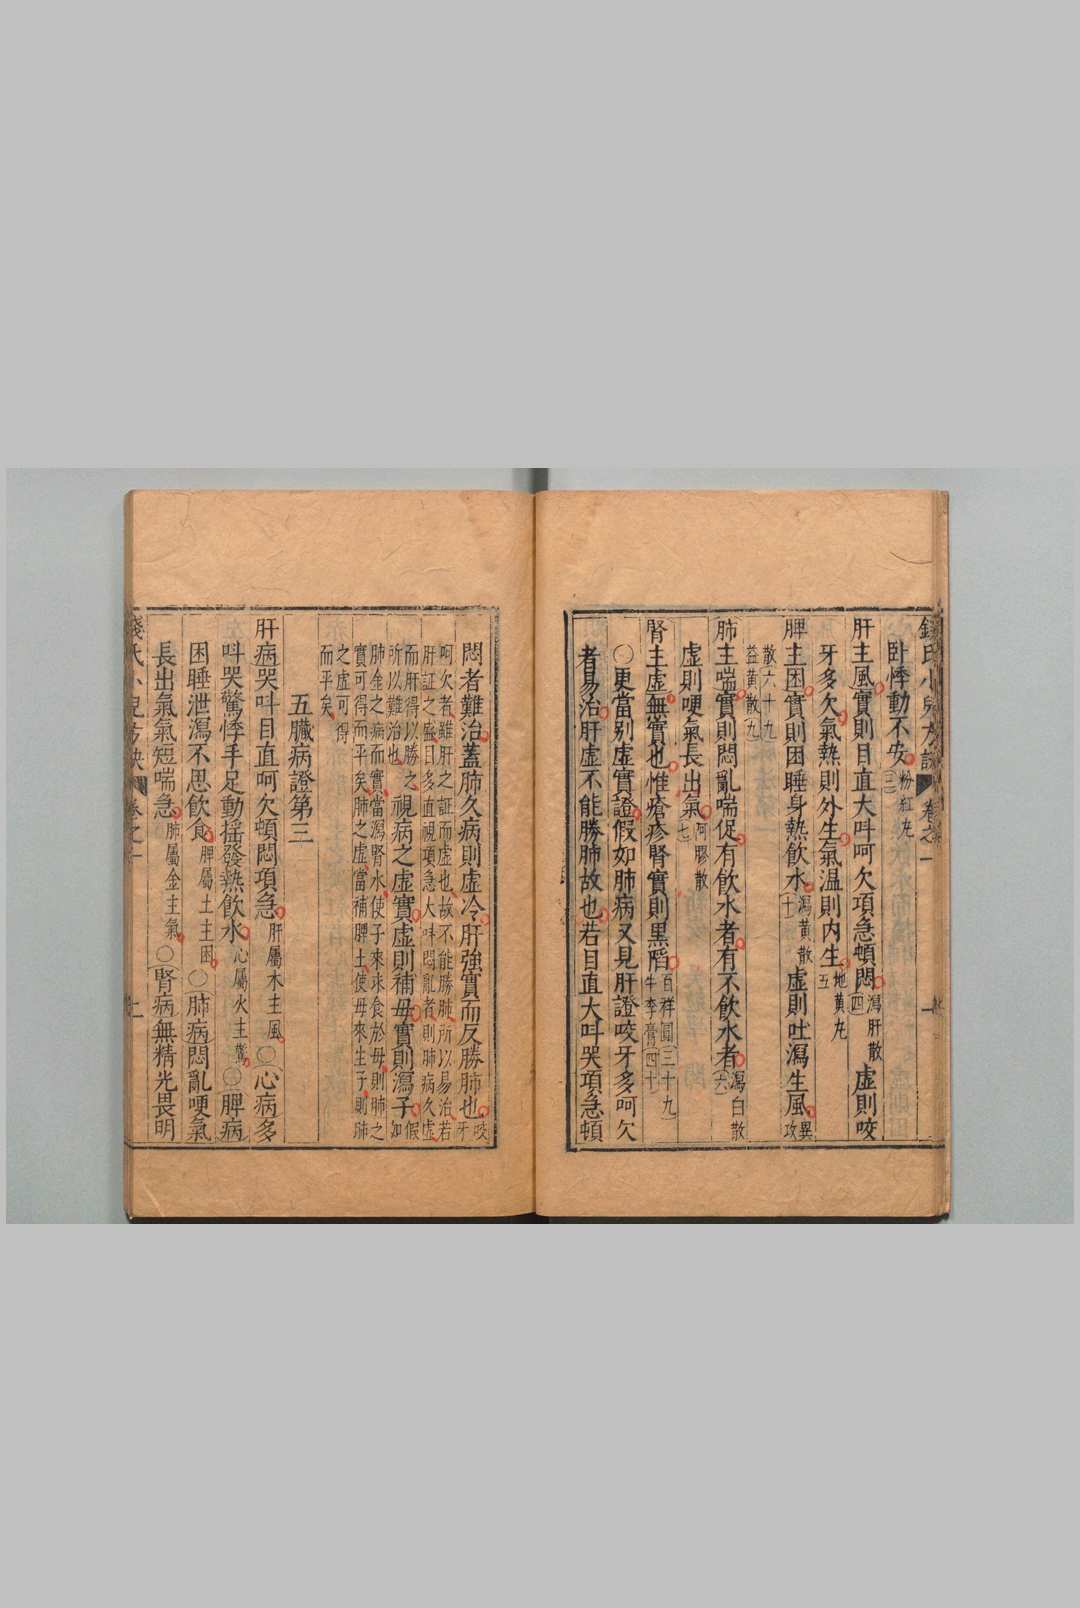 卧悸動不安粉紅丸(三)
肝主風實則目直大呌呵欠項急頓悶瀉肝散(四)虛則咬
牙多欠氣熱則外生氣温則内生地黄丸五
脾主困實則困睡身熱飲水瀉黄散(十)虛則吐瀉生風異攻
散(六十九)益黄散(九)
肺主喘實則悶亂喘促有飲水者有不飲水者瀉白散(六)
虛則哽氣長出氣阿膠散七
腎主虛無實也惟瘡疹腎實則黒陷百祥圓(三十九)牛李膏(四十)
○更當别虛實證假如肺病又見肝證咬牙多呵欠
者易治肝虛不能勝肺故也若目直大呌哭項急頓
悶者難治蓋肺久病則虛冷肝強實而反勝肺也咬牙
呵欠者雖肝之証而虛也故不能勝肺所以易治若
肝証之盛目多直視項急大呌悶亂者則肺病久虛
而肝得以勝之所以難治也視病之虛實虛則補母實則瀉子假如
肺金之病而實當瀉腎水使子來求食於母則肺之
實可得而平矣肺之虛當補脾土使母來生子則肺
之虛可得
而平矣
五臓病證第三
肝病哭呌目直呵欠頓悶項急肝屬木主風○心病多
呌哭驚悸手足動揺發熱飲水心屬火主驚○脾病
困睡泄瀉不思飲食脾屬土主困○肺病悶亂哽氣
長出氣氣短喘急肺屬金主氣○腎病無精光畏明